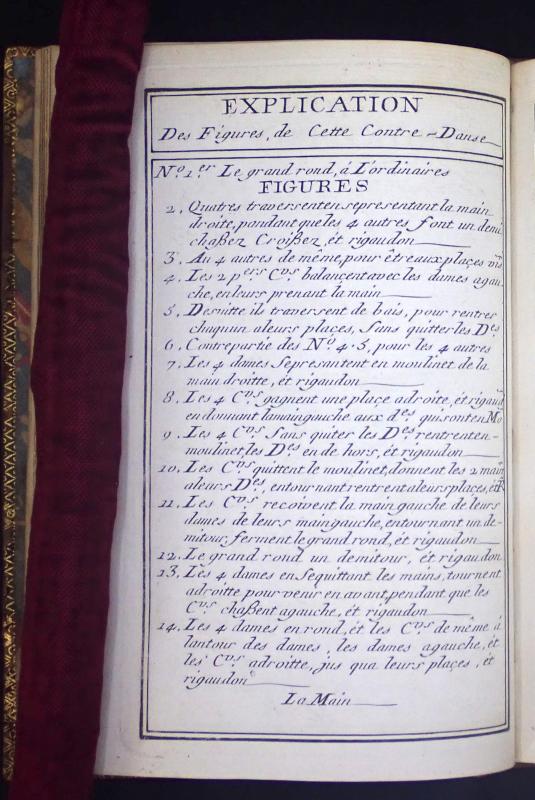 EXPLICATION
Des Figures, de Cette Contre-Danse
No. 1er Le grand rond, á L'ordinaires
FIGURES
2. Quatres traversent en se presentant la main
droite, pandant que les 4 autres font un demi
chaßez Croißez, ét rigaudon
3. Au 4 autres de même, pour être aux places
4. Les 2 pers Cvs. balançent avec les dames agau-
che, en leurs prenant la main
5. Desuitte ils traversent de bais, pour rentrer
chaquun a leurs places, Sans quitter les Des.
6. Contrepartie des No. 4.5, pour les 4 autres
7. Les 4 dames Sepresantent en moulinet de la
main droitte, ét rigaudon
8. Les 4 Cvs. gagnent une place adroite, ét rigaud
en donnant la main gauche aux des. qui sont en Mo
9. Les 4 Cvs. Sans quiter les Des. rentrent en-
moulinet, les Des. en de hors, ét rigaudon
10. Les Cvs. quittent le moulinet, donnent les 2 main
a leurs Des., entournant rentrent a leurs places, ét R
11. Les Cvs. recoivent la main gauche de leurs
dames de leurs main gauche, entournant un de-
mitour, ferment le grand rond, ét rigaudon
12. Le grand rond un demitour, ét rigaudon
13. Les 4 dames en Sequittant les mains, tournent
adroitte pour venir en avant, pendant que les
Cvs. chaßent agauche, ét rigaudon
14. Les 4 dames en rond, ét les Cvs. de même á
lantour des dames, les dames agauche, ét
les Cvs. adroitte, jus qua leurs places, ét
rigaudon
La Main